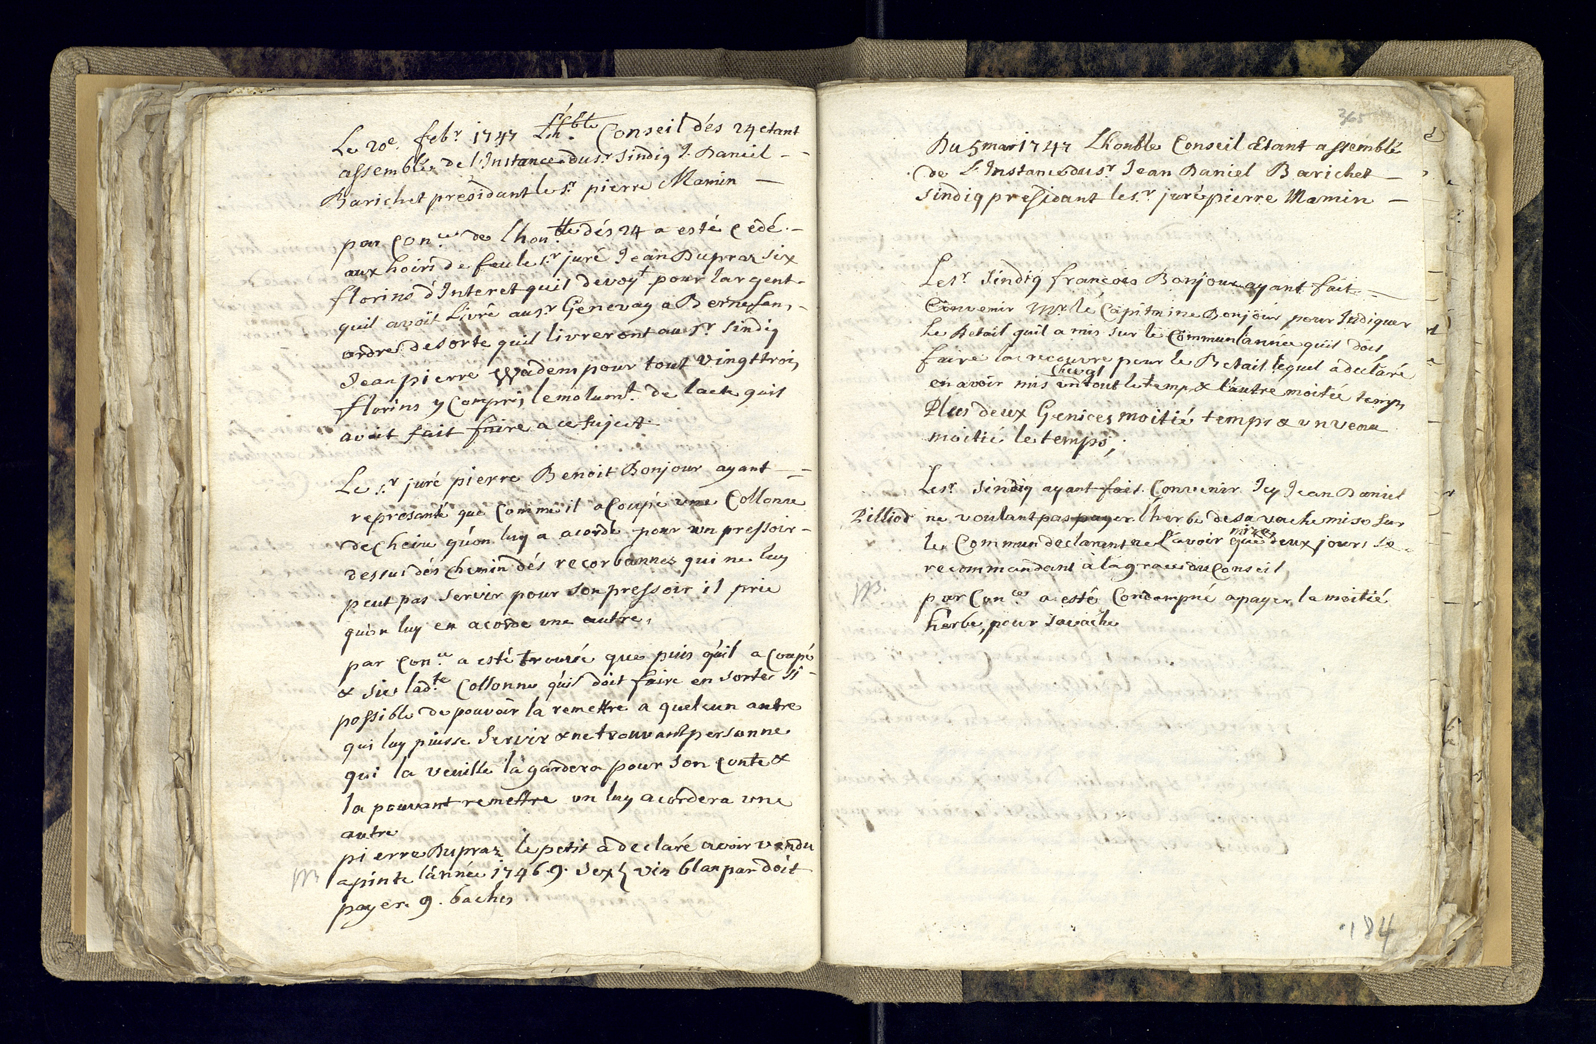 Le 20e. febr 1747 Lhble Conseil dés 24 etant
assemblé de l'Instance du sr sindiq J. Daniel
Barichet presidant le sr pierre Mamin
par Con.ce de lhon.ble dés 24 a esté cedé
aux hoirs de feu le sr juré Jean Dupraz six
florins d'Interet quil devoyt pour largent
quil avoit Livré au sr Genevay a Berne sen
ordre desorte quils livreront au sr sindiq
Jean pierre Wadem pour tout vingt trois
florins y Compris lemolumt. de lacte quil
avoit fait faire a ce sujet
Le sr juré pierre Benoit Bonjour ayant
represanté que Comme il a Coupé une Collonne
de Cheine qu'on luy a acordé pour un pressoir
dessus dés chemin dés recorbannes qui ne luy
peut pas servir pour son pressoir il prie
qu'on luy en acorde une autre,
par Con.ce a esté trouvé que puis qu'il a Coupé
& sie ladte. Collonne qu'il doit faire en sorte si
possible de pouvoir la remettre a quelcun autre
qui luy puisse servir & ne trouvant personne
qui la veuille la gardera pour son conte &
la pouvant remettre on luy acordera une
autre
pierre Dupraz le petit a declaré avoir vendu
a pinte l'année 1746 9. sex vin blan par doit
payer 9. baches
365
Du 5 mar 1747 Lhonble Conseil Etant assemblé
de L'Instance du sr Jean Daniel Barichet
sindiq presidant le sr juré pierre Mamin
Le sr sindiq françois Bonjour ayant fait
Convenir Mr. le Capitaine Bonjour pour Indiquer
Le Betail quil a mis sur le Commun lannee quil dois
faire la recouvre pour le Betail lequel a declaré
cheval
en avoir mis un tout le temps & l'autre moitié temps
Plus deux Genices moitié temps & un veau
moitié le temps,
Le sr sindiq ayant fait Convenir Icy Jean Daniel
Pilliod ne voulant pas payer l'herbe de sa vache mise sur
mizes
le Commun declarent ne l'avoir que deux jours se
recommandant a la grace du Conseil,
par Con.ce a esté Condampné a payer la moitié
herbe, pour sa vache
184